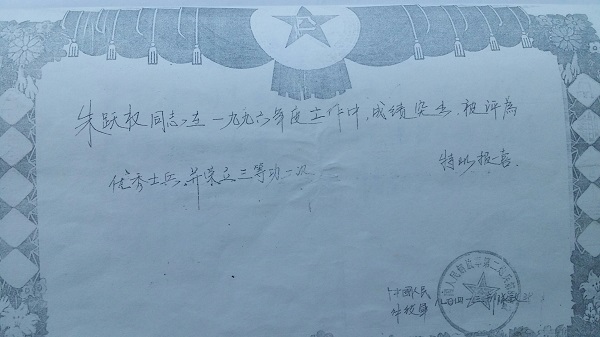 八一
朱跃权同志,在一九九六年度工作中,成绩突出,被评为
优秀士兵,并荣立三等功一次
特此报喜.
中國人民